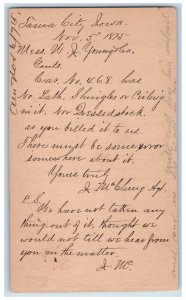 Tama City, Iowa.
Nov. 5" 1875
Mess. W. J. Young & Co.
Gents
Car No. 468. has
No. Lath, Shingles or Ceiling
in it, nor Dressed stock.
as you billed it to us.
There must be some error
somewhere about it.
Yours truly
J. McClung Agt.
P.S.
We have not taken any
thing out of it, thought we
would not till we hear from
you in the matter.
J. Mc.